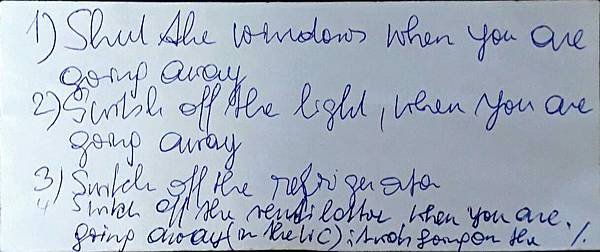 1) Shut the windows when you are
going away
2) Switch off the light, when you are
going away
3) Switch off the refrigerator
4) Switch off the ventilator when you are
going away (in the WC); it works on the ./.